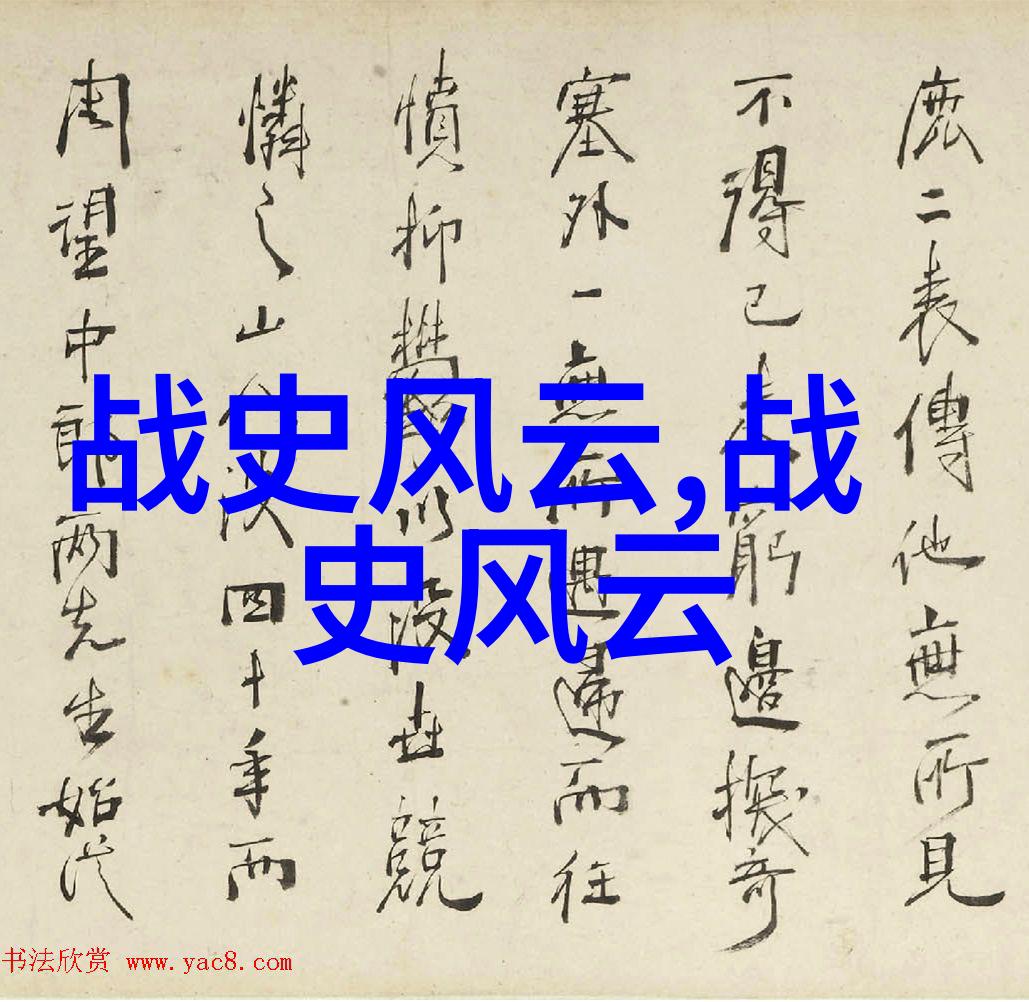 战史风云,战
史风云
二表傳他無所見
不得已邊奇
塞外一無所遇而往
憤抑鬱以没世競
憐之山没四十年而
周望中郎兩先生始從
书法欣赏 www.yac8.com